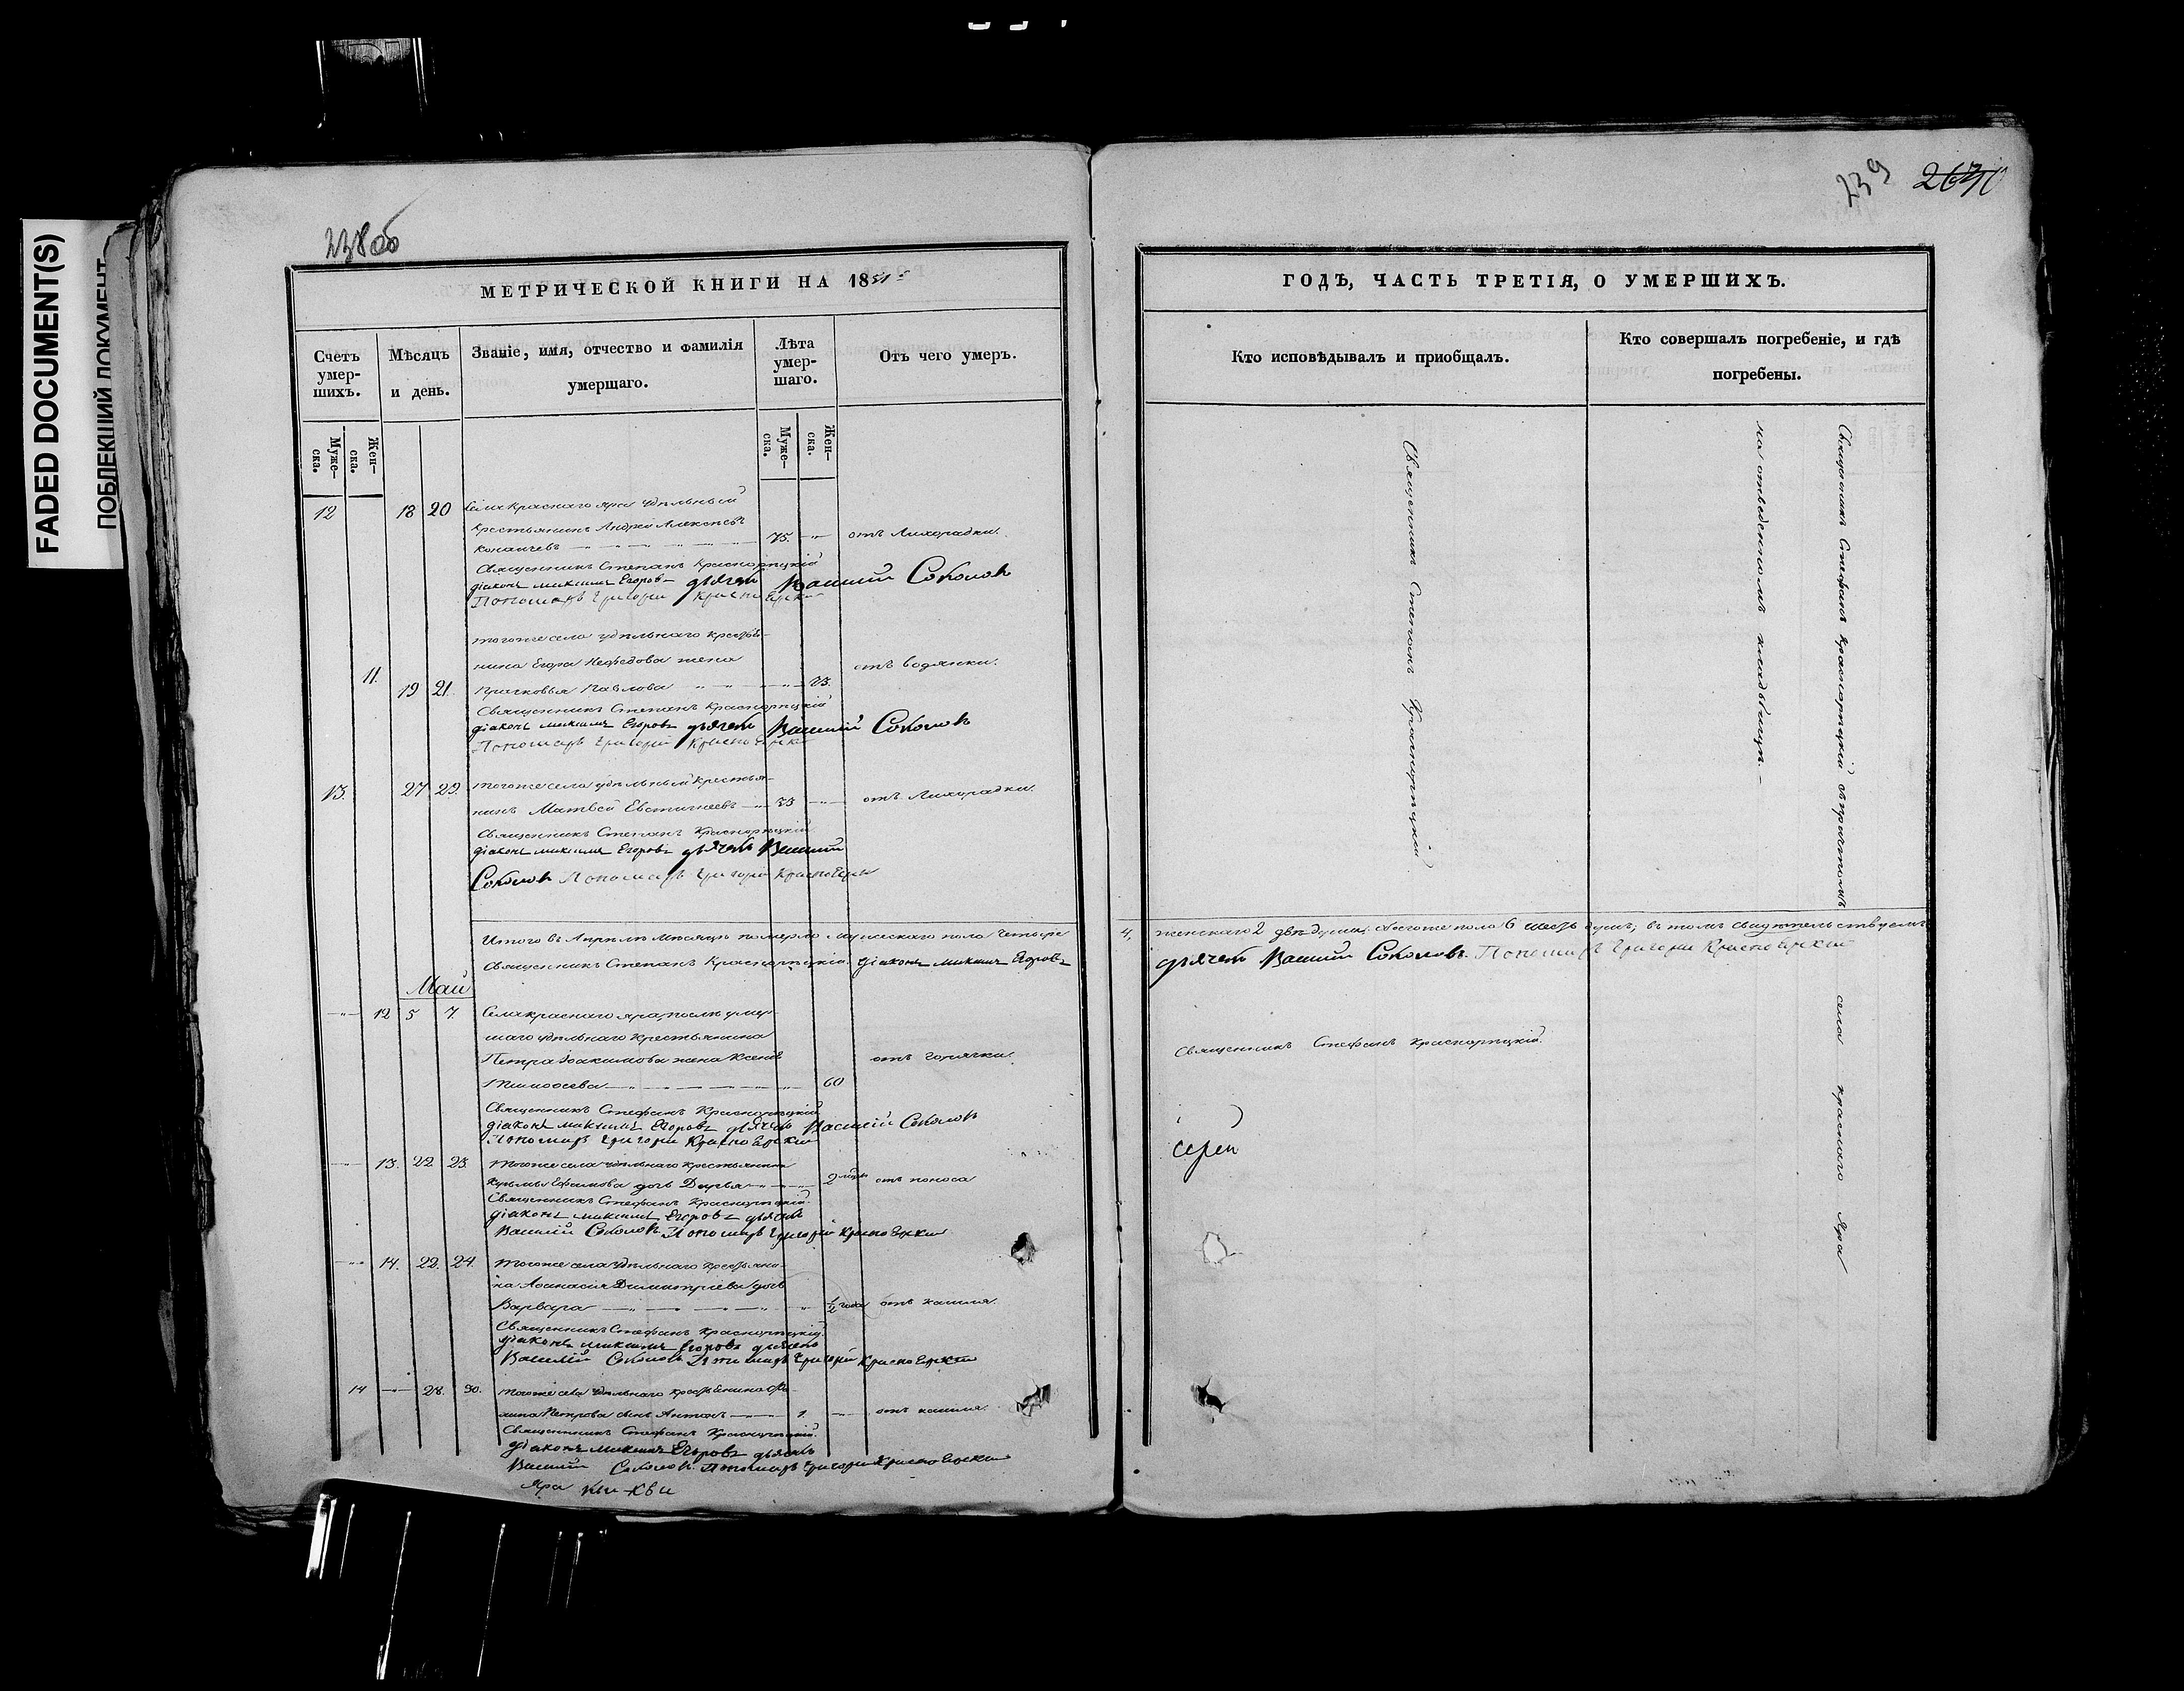 FADED DOCUMENT(S)
ПОБЛЕКШИЙ ДОКУМЕНТ
238об
239
МЕТРИЧЕСКОЙ КНИГИ НА 1851
Счетъ умер-шихъ.
Муже-ска.
Жен-ска.
Мѣсяцъ и день.
Званіе, имя, отчество и фамилія
умершаго.
Лѣта умер-шаго.
Муже-ска.
Жен-ска.
Отъ чего умеръ.
12 18 20 Села Краснаго Яра удѣльный
крестьянинъ Андрей Алексѣевъ
75. отъ Лихорадки.
Священникъ Степанъ Красноярицкій
діаконъ Максимъ Егоровъ дьячекъ Василий Соколовъ
Пономарь Григорий Красноярский
тогоже села удѣльнаго крестья-
нина Егора Нефедова жена
отъ водянки.
11. 19 21. Прасковья Павлова 23.
Священникъ Степанъ Красноярицкій
діаконъ Максимъ Егоровъ дьячекъ Василий Соколовъ
Пономарь Григорий Красноярский
13. 27 29. тогоже села удѣльный крестья-
нинъ Матвей Евстигнеевъ 23 отъ Лихорадки.
Священникъ Степанъ Красноярицкій
діаконъ Максимъ Егоровъ дьячекъ Василий
Соколовъ Пономарь Григорий Красноярский
Итого въ Апрѣлѣ мѣсяцѣ померло мужескаго пола четыре
Священникъ Степанъ Красноярицкій. діаконъ Максимъ Егоровъ
Май
12 5 7. Села краснаго яра, послѣ умер-
шаго удѣльнаго крестьянина
Петра Іоакимова жена Ксенія отъ горячки.
Тимоѳеева 60
Священникъ Стефанъ Красноярицкій
діаконъ Максимъ Егоровъ дьячекъ Василий Соколовъ
Пономарь Григорий Красноярский
13. 22 23. тогоже села удѣльнаго крестьянина
Кузьмы Ефимова дочь Дарья 2 отъ поноса
Священникъ Стефанъ Красноярицкій.
діаконъ Максимъ Егоровъ дьячекъ
Василий Соколовъ Пономарь Григорий Красноярский
14. 22. 24. тогоже села удѣльнаго крестьяни-
на Аѳанасія Димитріева дочь
Варвара ½ года отъ кашля.
Священникъ Стефанъ Красноярицкій.
діаконъ Максимъ Егоровъ дьячекъ
Василий Соколовъ Пономарь Григорий Красноярский
14 28. 30. тогоже села удѣльнаго крестьянина
Петрова сынъ Антонъ 1. отъ кашля.
Священникъ Стефанъ Красноярицкій.
діаконъ Максимъ Егоровъ дьячекъ
Василий Соколовъ. Пономарь Григорий Красноярский
Яра
ГОДЪ, ЧАСТЬ ТРЕТІЯ, О УМЕРШИХЪ.
Кто исповѣдывалъ и приобщалъ.
Кто совершалъ погребеніе, и гдѣ
погребены.
Священникъ Степанъ Красноярицкій
Священникъ Стефанъ Красноярицкій съ причтомъ
на отведенномъ кладбищѣ.
4, женскаго 2 двѣ души, обоего пола 6 шесть душъ; въ томъ свидѣтельствуемъ
дьячекъ Василий Соколовъ. Пономарь Григорий Красноярский
Священникъ Стефанъ Красноярицкій.
села краснаго Яра